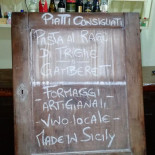 Piatti Consigliati
Pasta al Ragù
di Triglie
Gamberetti
Formaggi
Artigianali
Vino locale
Made in Sicily